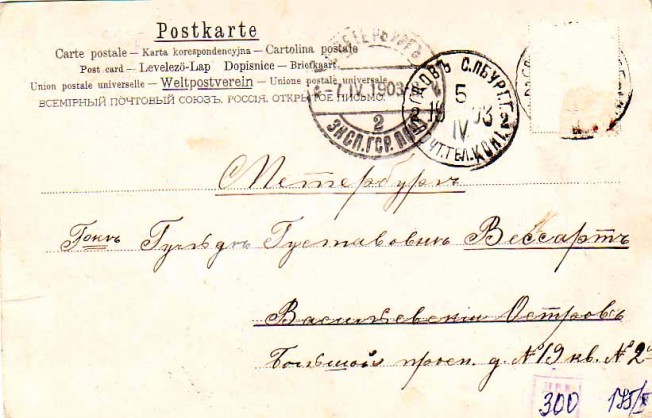 Postkarte
Carte postale – Karta korespondencyjna – Cartolina postale
Post card – Levelező-Lap Dopisnice – Briefkaart
Union postale universelle – Weltpostverein – Unione postale universale
ВСЕМІРНЫЙ ПОЧТОВЫЙ СОЮЗЪ. РОССІЯ. ОТКРЫТОЕ ПИСЬМО.
-7.IV.1903
2
ГДОВЪ С.ПБУРГ.Г.
5
IV
03
2 2
С.Петербургъ
Гульдѣ Густавовнѣ Вессартъ
Васильевскій Островъ
Большой просп. д. №19 кв. №2
300